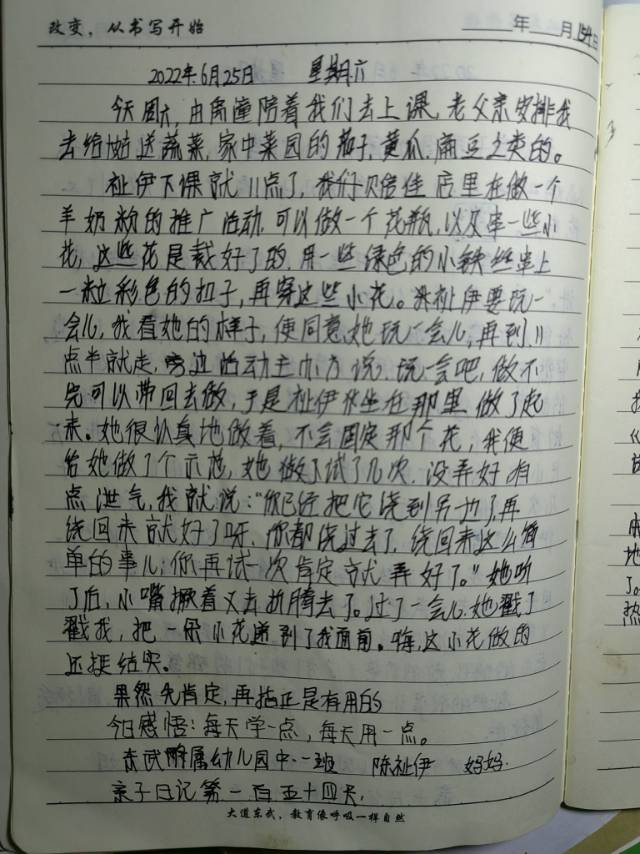 改变，从书写开始
年 月 日
2022年6月25日 星期六
今天周六，由 陪着我们去上课，老父亲安排我
去给 送蔬菜，家中菜园的茄子，黄瓜，扁豆之类的。
祉伊下课就11点了，我们贝倍佳店里在做一个
羊奶粉的推广活动，可以做一个花瓶，以及串一些小
花，这些花是裁好了的，用一些绿色的小铁丝串上
一粒彩色的扣子，再穿这些小花。祉伊要玩一
会儿，我看她的样子，便同意她玩一会儿，再到11
点半就走，旁边活动主办方说，玩一会吧，做不
完可以带回去做，于是祉伊便坐在那里做了起
来。她很认真地做着，不会固定那个花，我便
给她做了个示范，她做了试了几次，没弄好有
点泄气，我就说：“你已经把它绕到另一边了，再
绕回来就好了呀，你都绕过去了，绕回来这么简
单的事儿；你再试一次肯定就弄好了。”她听
了后，小嘴撅着又去折腾去了。过了一会儿她戳了
戳我，把一朵小花递到了我面前。嗨，这小花做的
还挺结实。
果然先肯定，再指正是有用的
今日感悟：每天学一点，每天用一点。
东武附属幼儿园中一班 陈祉伊 妈妈
亲子日记第一百五十四天
大道东武，教育像呼吸一样自然